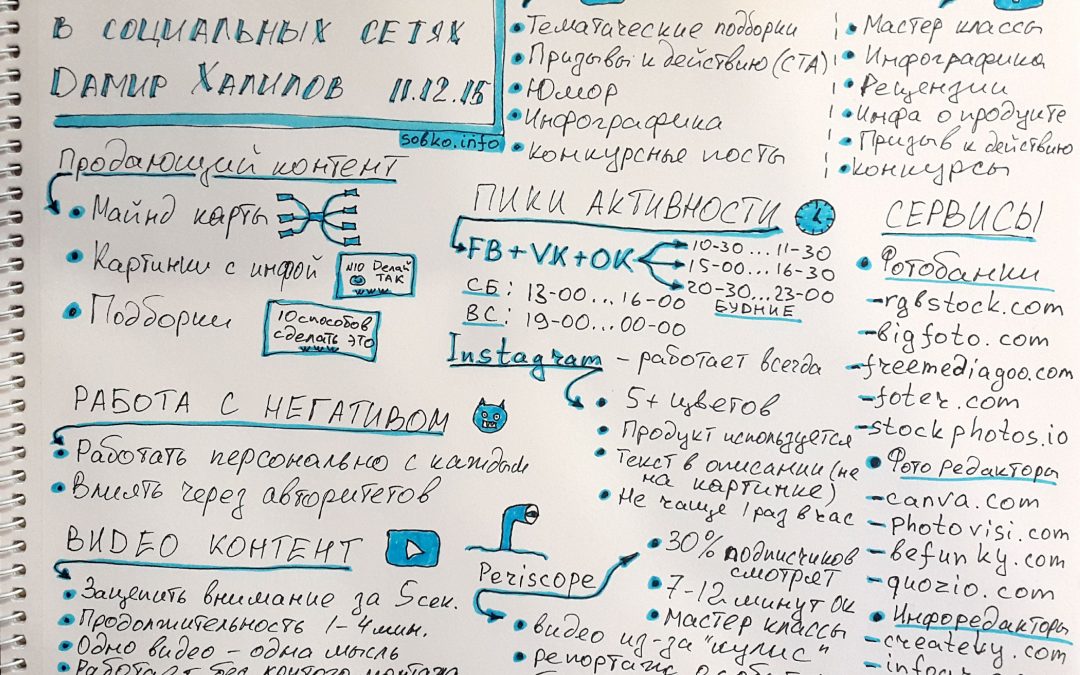 В СОЦИАЛЬНЫХ СЕТЯХ
ДАМИР ХАЛИЛОВ 11.12.15
sobko.info
Продающий контент
Майнд карты
Картинки с инфой
№10 Делай
ТАК
Подборки
10 способов
сделать это
РАБОТА С НЕГАТИВОМ
Работать персонально с каждым
Влиять через авторитетов
ВИДЕО КОНТЕНТ
Зацепить внимание за 5 сек.
Продолжительность 1-4 мин.
Одно видео - одна мысль
Работает без крутого монтажа
Тематические подборки
Призывы к действию (СТА)
Юмор
Инфографика
конкурсные посты
Мастер классы
Инфографика
Рецензии
Инфа о продукте
Призыв к действию
конкурсы
ПИКИ АКТИВНОСТИ
FB+VK+OK
10-30...11-30
15-00...16-30
20-30...23-00
БУДНИЕ
СБ: 13-00...16-00
ВС: 19-00...00-00
Instagram - работает всегда
5+ цветов
Продукт используется
Текст в описании (не
на картинке)
Не чаще 1 раз в час
Periscope
30% подписчиков
смотрят
7-12 минут ок
Мастер классы
видео из-за "кулис"
репортаж
СЕРВИСЫ
Фотобанки
-rgbstock.com
-bigfoto.com
-freemediagoo.com
-foter.com
-stockphotos.io
Фото редакторы
-canva.com
-photovisi.com
-befunky.com
-quozio.com
Инфоредакторы
-creately.com